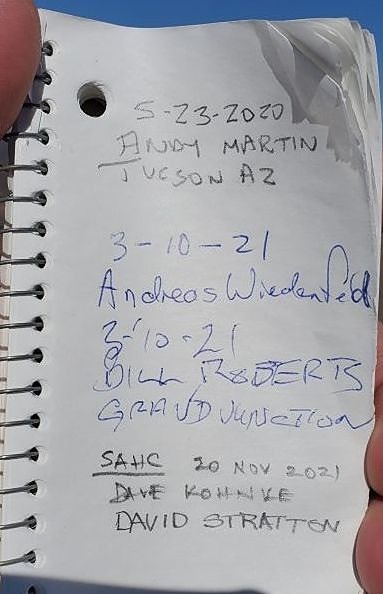 5-23-2020
ANDY MARTIN
TUCSON AZ
3-10-21
Andreas Wiedenfeld
3-10-21
BILL ROBERTS
GRAND JUNCTION
SAHC 20 NOV 2021
DAVE KOHNKE
DAVID STRATTON